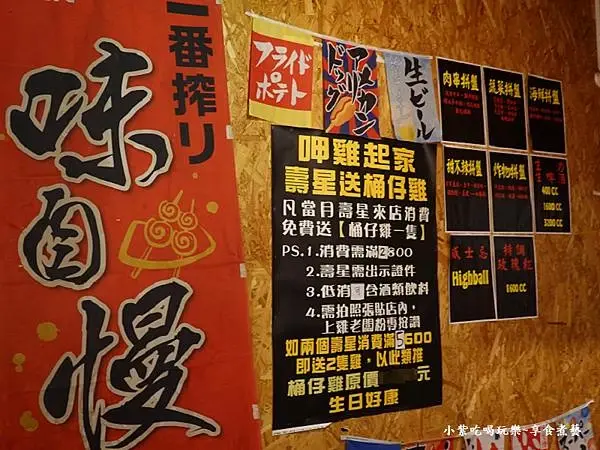 一番搾り
味自慢
フライド
ポテト
アメリカン
ドッグ
生ビール
呷雞起家
壽星送桶仔雞
凡當月壽星來店消費
免費送【桶仔雞一隻】
PS.1.消費需滿2800
2.壽星需出示證件
3.低消 含酒類飲料
4.需拍照張貼店內,
上雞老闆粉專按讚
如兩個壽星消費滿5600
即送2隻雞,以此類推
桶仔雞原價 元
生日好康
肉串拼盤
蔬菜拼盤
海鮮拼盤
甜不辣拼盤
炸物拼盤
400 CC
1600 CC
3200 CC
威士忌
Highball
特調
玫瑰紅
1600 CC
小紫吃喝玩樂~享食煮藝